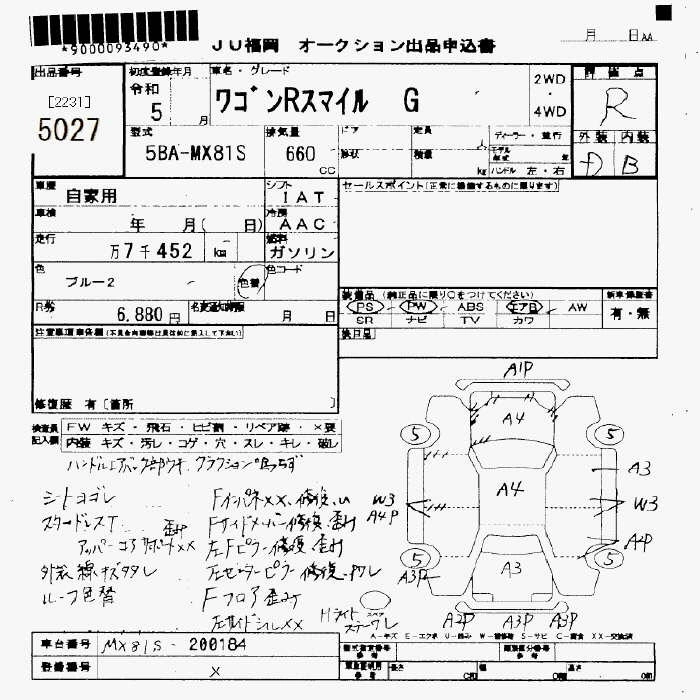 *9000093490*
JU福岡 オークション出品申込書
月 日 AA
出品番号
[2231]
5027
初度登録年月
令和
5 月
車名・グレード
ワゴンRスマイル G
2WD
4WD
評価点
R
型式
5BA-MX81S
排気量
660 cc
ドア
形状
定員
人
積量
kg
ディーラー・並行
モデル年式 年
ハンドル 左・右
外装 内装
D B
車歴
自家用
シフト
IAT
セールスポイント(正常に機能するものに限ります)
車検
年 月( 日)
冷房
AAC
走行
万7千452 km
燃料
ガソリン
色
ブルー2
色替
色コード
R券
6,880円
名変通知期限
月 日
装備品 (純正品に限り○をつけてください)
新車保証書
PS PW ABS エアB AW
有・無
SR ナビ TV カワ
注意事項申告欄
後日品
修復歴 有〔箇所 〕
検査員記入欄
FW キズ・飛石・ヒビ割・リペア跡・×要
内装 キズ・汚レ・コゲ・穴・スレ・キレ・破レ
シートヨゴレ
スタードレスT
外装線キズタレ
ルーフ色替
Fインパネ××、修復
Fサイドメンバー修復、歪み
アッパーコアサポート××
左Fピラー修復、歪み
左センターピラー修復
Fフロア歪み
左サイドシル××
A1P
A4
5 5
A3
W3 A4 W3
A4P
A4P
5 5
A3P
A3
A2P A3P A3P
A-キズ E-エクボ U-凹み W-補修跡 S-サビ C-腐食 XX-交換済
車台番号
MX81S-200184
登録番号
×
型式指定番号 参考
類別区分番号 参考
長さ cm 幅 cm 高さ cm